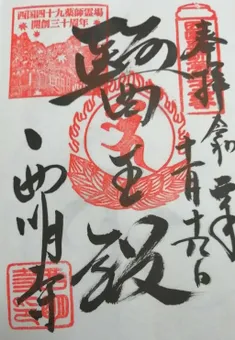 奉拝
令和元年
十一月十六日
西国四十九薬師霊場
開創三十周年
醫王殿
西明寺